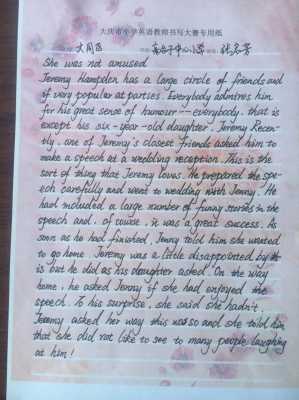 大庆市小学英语教师书写大赛专用纸
大同区 中心小学
She was not amused
Jeremy Hampden has a large circle of friends and
if very popular at parties. Everybody admires him
for his great sense of humour -- everybody. that is
except his six-year-old daughter. Jeremy Recen-
tly, one of Jeremy's closest friends asked him to
make a speech at a wedding reception. This is the
sort of thing that Jeremy loves. He prepared the spe-
ech carefully and went to wedding with Jenny. He
had included a large number of funny stories in the
speech and, of course, it was a great success. As
soon as he had finished, Jenny told him she wanted
to go home. Jeremy was a little disappointed by th
is but he did as his daughter asked. On the way
home, he asked Jenny if she had enjoyed the
speech. To his surprise, she said she hadn't.
Jeremy asked her way this was so and she told him
that she did not like to see to many people laughing
at him!